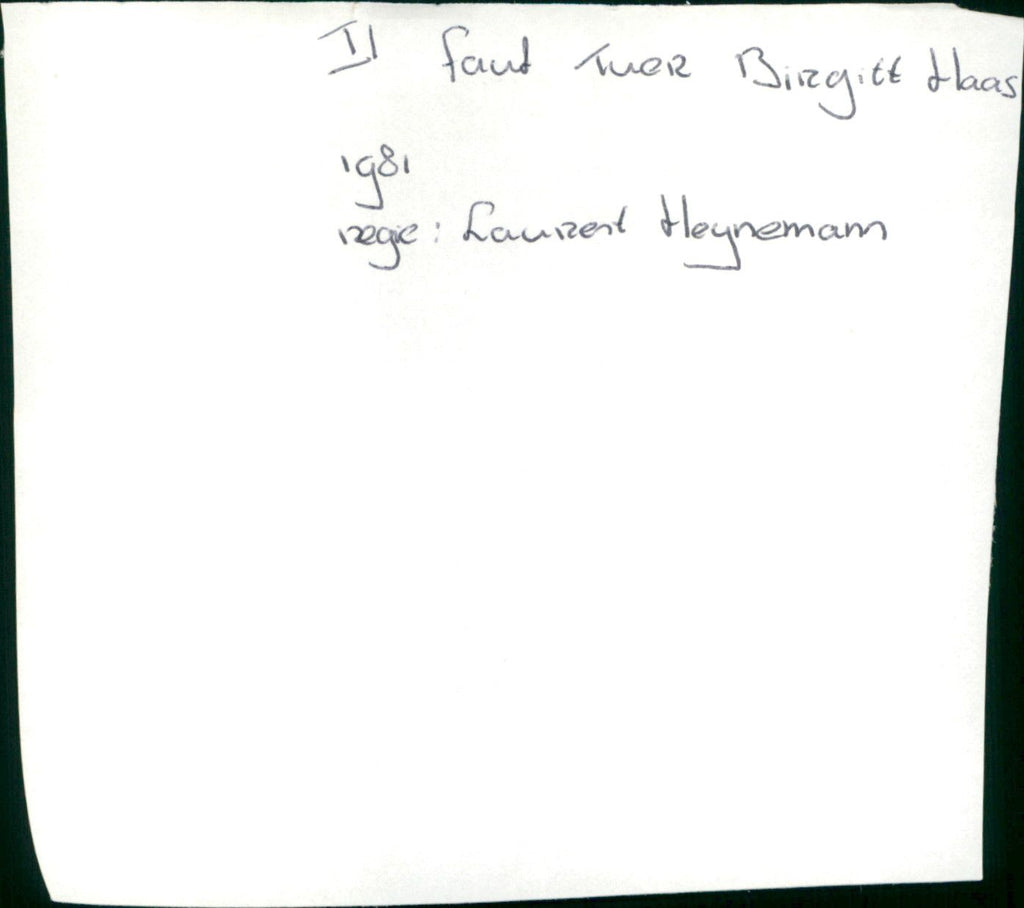 Il faut Tuer Birgitt Haas
1981
regie: Laurent Heynemann